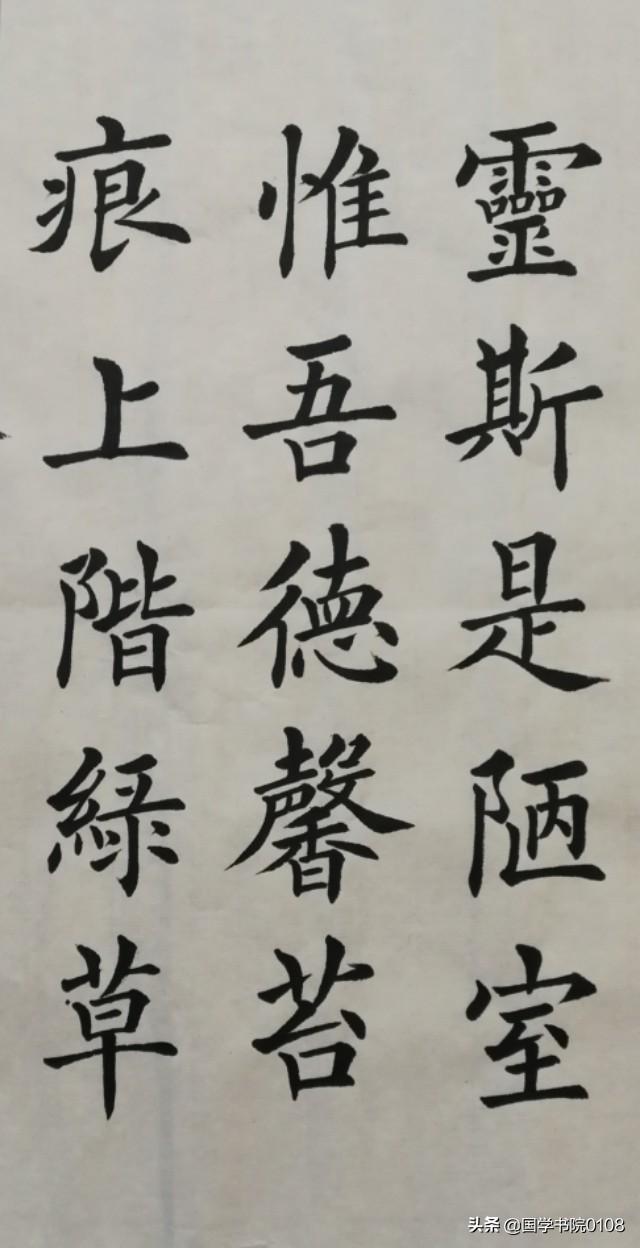 靈斯是陋室
惟吾德馨苔
痕上階綠草
头条 @国学书院0108